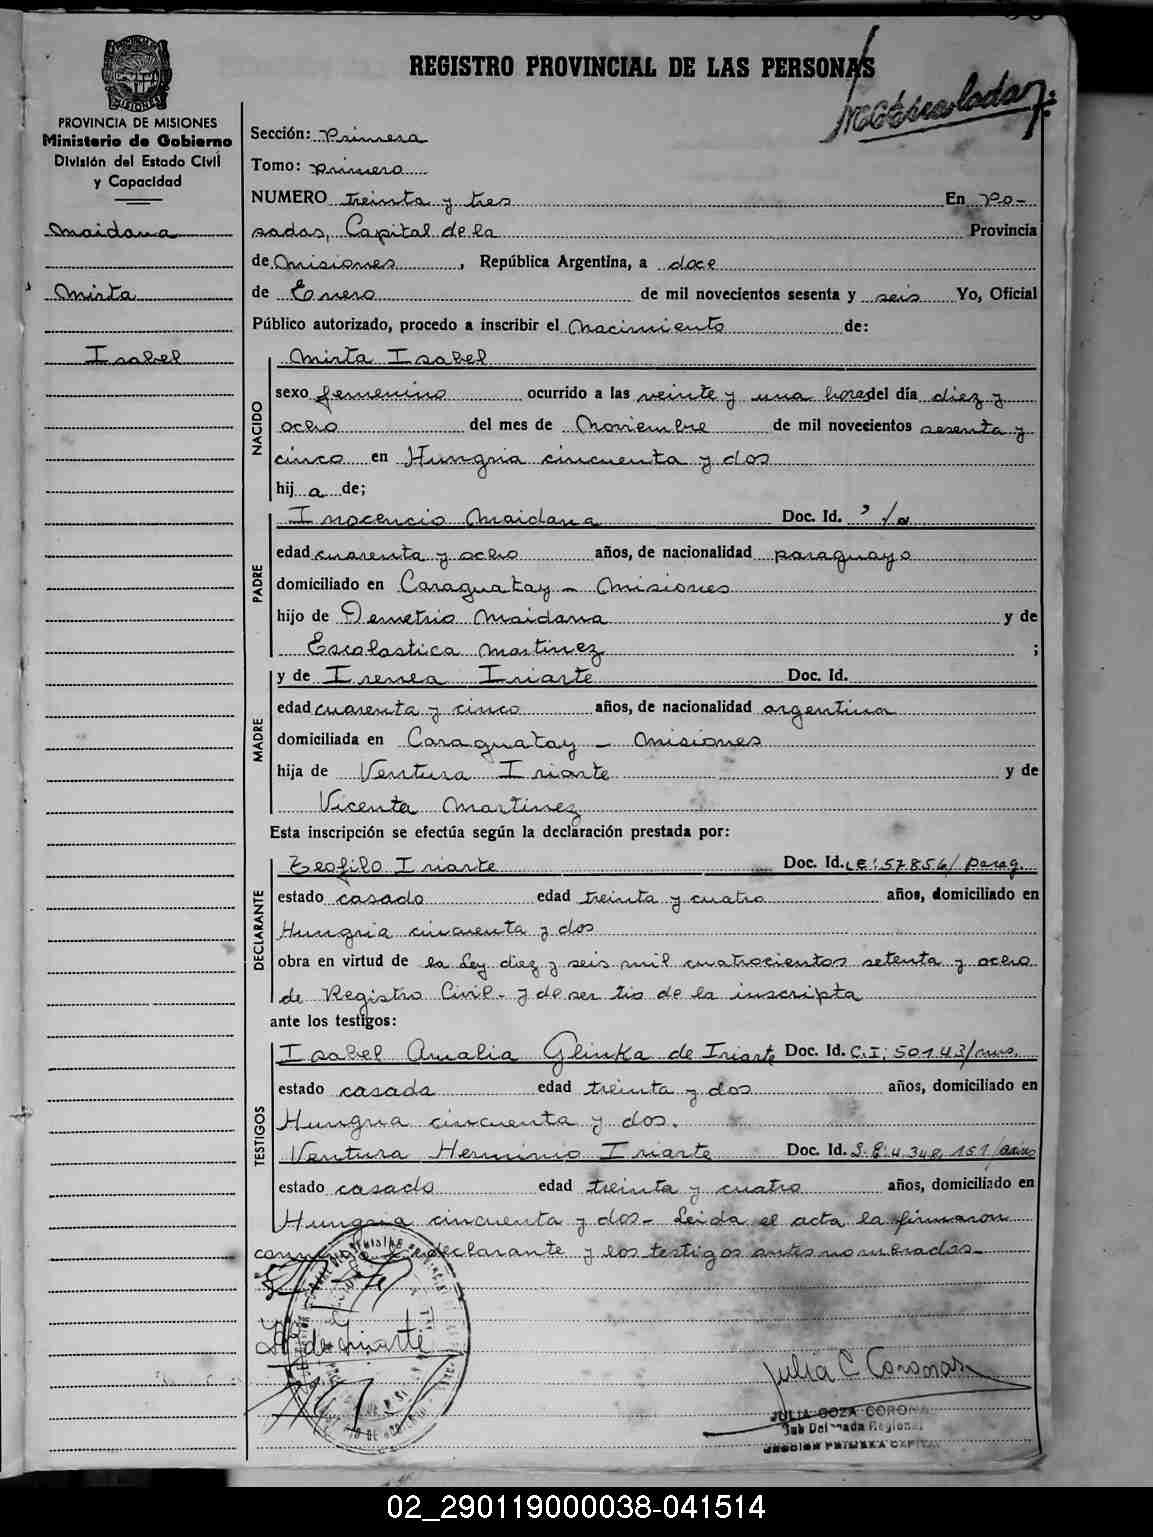 REGISTRO PROVINCIAL DE LAS PERSONAS
PROVINCIA DE MISIONES
Ministerio de Gobierno
División del Estado Civil
y Capacidad
Maidana
Mirta
Isabel
Sección: Primera
Tomo: primero
NUMERO treinta y tres En Po-
sadas, Capital de la Provincia
de Misiones, República Argentina, a doce
de Enero de mil novecientos sesenta y seis Yo, Oficial
Público autorizado, procedo a inscribir el Nacimiento de:
NACIDO
Mirta Isabel
sexo femenino ocurrido a las veinte y una horas del día diez y
ocho del mes de Noviembre de mil novecientos sesenta y
cinco en Hungria cincuenta y dos
hij a de;
PADRE
Inocencio Maidana Doc. Id.
edad cuarenta y ocho años, de nacionalidad paraguayo
domiciliado en Caraguatay - Misiones
hijo de Demetrio Maidana y de
Escolastica Martinez ;
MADRE
y de Irenea Iriarte Doc. Id.
edad cuarenta y cinco años, de nacionalidad argentina
domiciliada en Caraguatay - Misiones
hija de Ventura Iriarte y de
Vicenta Martinez
Esta inscripción se efectúa según la declaración prestada por:
DECLARANTE
Teofilo Iriarte Doc. Id. CE: 57856/ parag.
estado casado edad treinta y cuatro años, domiciliado en
Hungria cincuenta y dos
obra en virtud de la Ley diez y seis mil cuatrocientos setenta y ocho
de Registro Civil - y de ser tio de la inscripta
ante los testigos:
TESTIGOS
Isabel Amalia Glinka de Iriarte Doc. Id. C.I: 50143/mns.
estado casada edad treinta y dos años, domiciliado en
Hungria cincuenta y dos.
Ventura Herminio Iriarte Doc. Id. L.E: 4.348.151/
estado casado edad treinta y cuatro años, domiciliado en
Hungria cincuenta y dos - Leida el acta la firmaron
declarante y los testigos antes nombrados -
de Iriarte
Julia C Coronas
JULIA COZA CORONA
Sub Delegada Regional
SECCION PRIMERA CAPITAL
02_290119000038-041514